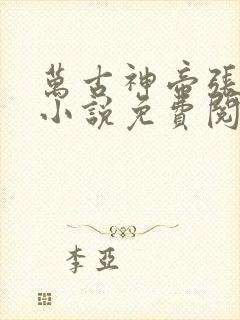 萬古神帝張
小說免費閱
李亞